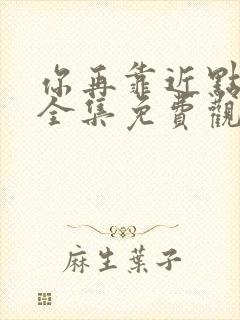 你再靠近點
全集免費觀
麻生葉子